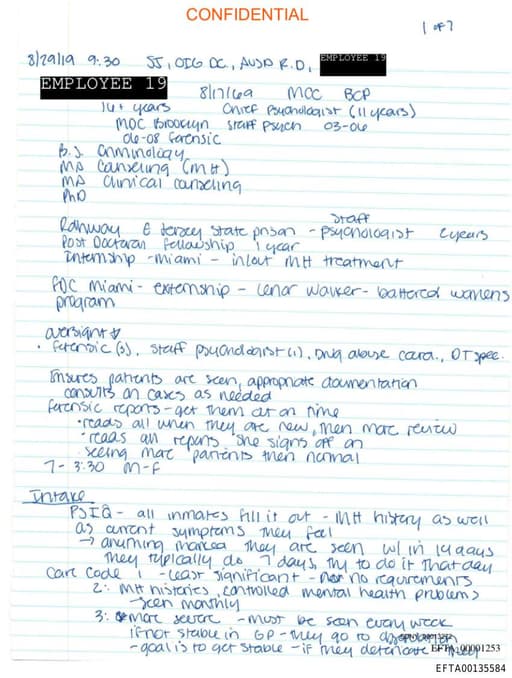 CONFIDENTIAL
1 of 7
8/29/19 9:30 SJ, OIG DC, AUSA R.D,
EMPLOYEE 19
EMPLOYEE 19
8/17/69 MDC BCP
14+ years Chief Psychologist (11 years)
MDC Brooklyn Staff Psych 03-06
06-08 forensic
B.S. Criminology
MA Canseling (MH)
MA Clinical counseling
PhD
Staff
Rahway E Jersey State prison - psychologist 2 years
Post Doctoral Fellowship 1 year
Internship - Miami - in/out MH treatment
FDC Miami - externship - Lenor Walker - battered womens
program
oversight
• Forensic (3), Staff psychologist (1), Drug abuse coord., OT spec.
Ensures patients are seen, appropriate documentation
consults on cases as needed
forensic reports - get them out on time
• reads all when they are new, then more review
• reads all reports she signs off on
- seeing more patients then normal
7- 3:30 M-F
Intake
PSIQ - all inmates fill it out - MH history as well
as current symptoms they feel
→ anything marked they are seen w/in 14 days
they typically do 7 days, try to do it that day
Care Code 1 - least significant - no requirements
2: MH histories, controlled mental health problems
- seen monthly
3: more severe - must be seen every week
if not stable in GP - they go to
- goal is to get stable - if they deteriorate they
EFTA_00001253
EFTA00135584